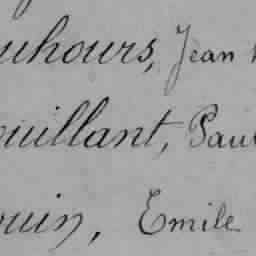 uhours, Jean
ouillant, Paul
ouin, Emile